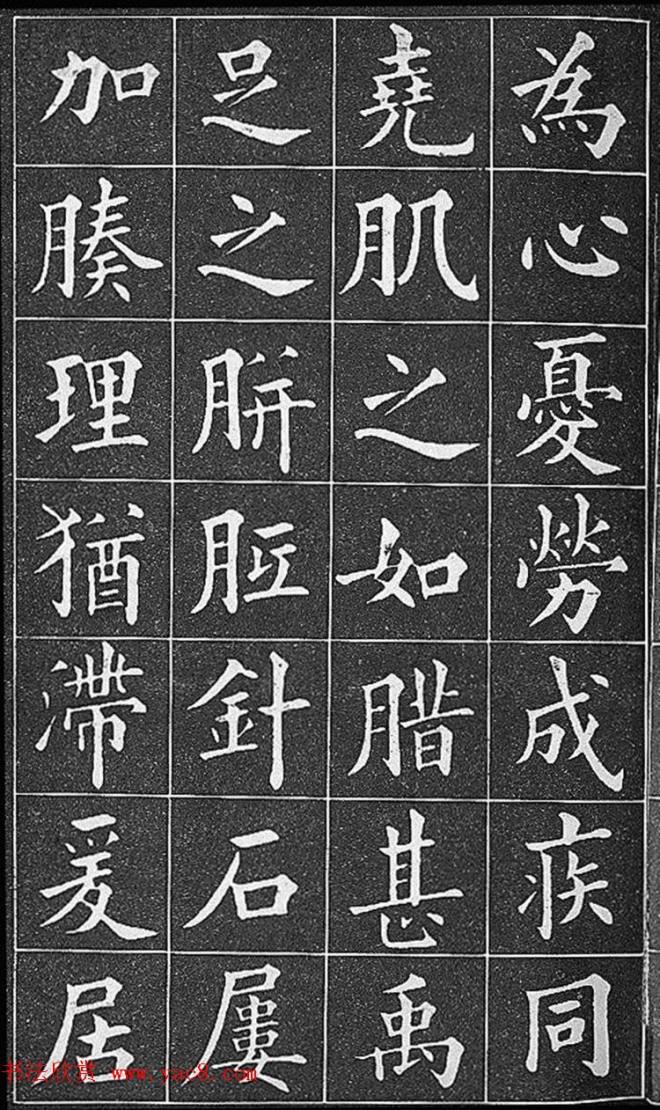 為心憂勞成疾同
堯肌之如腊甚禹
足之胼胝針石屢
加腠理猶滯爰居
书法欣赏 www.yac8.com